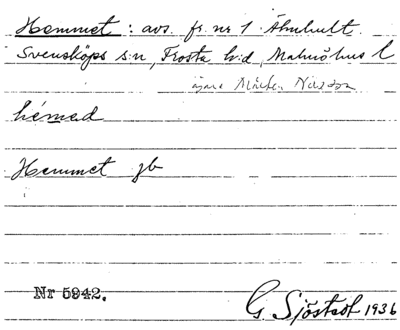 Hemmet : avs. fr. nr 1 Älmhult.
Svensköps s:n, Frosta h:d, Malmöhus l
ägare Mårten Nilsson
hémed
Hemmet jb
Nr 5942.
G. Sjöstedt 1936